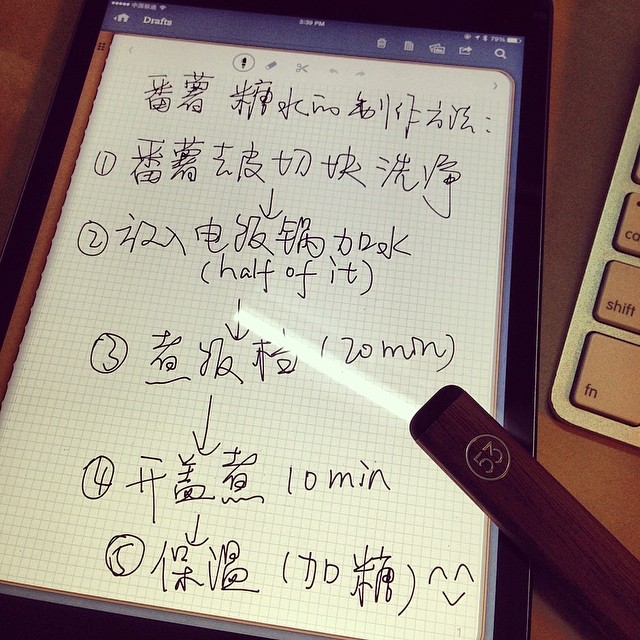 中国联通
3:39 PM
79%
Drafts
番薯 糖水的制作方法:
① 番薯去皮切块 洗净
↓
② 放入电饭锅加水
(half of it)
↓
③ 煮饭档 (20min)
↓
④ 开盖煮 10min
↓
⑤ 保温 (加糖) ^^
53
shift
fn
1